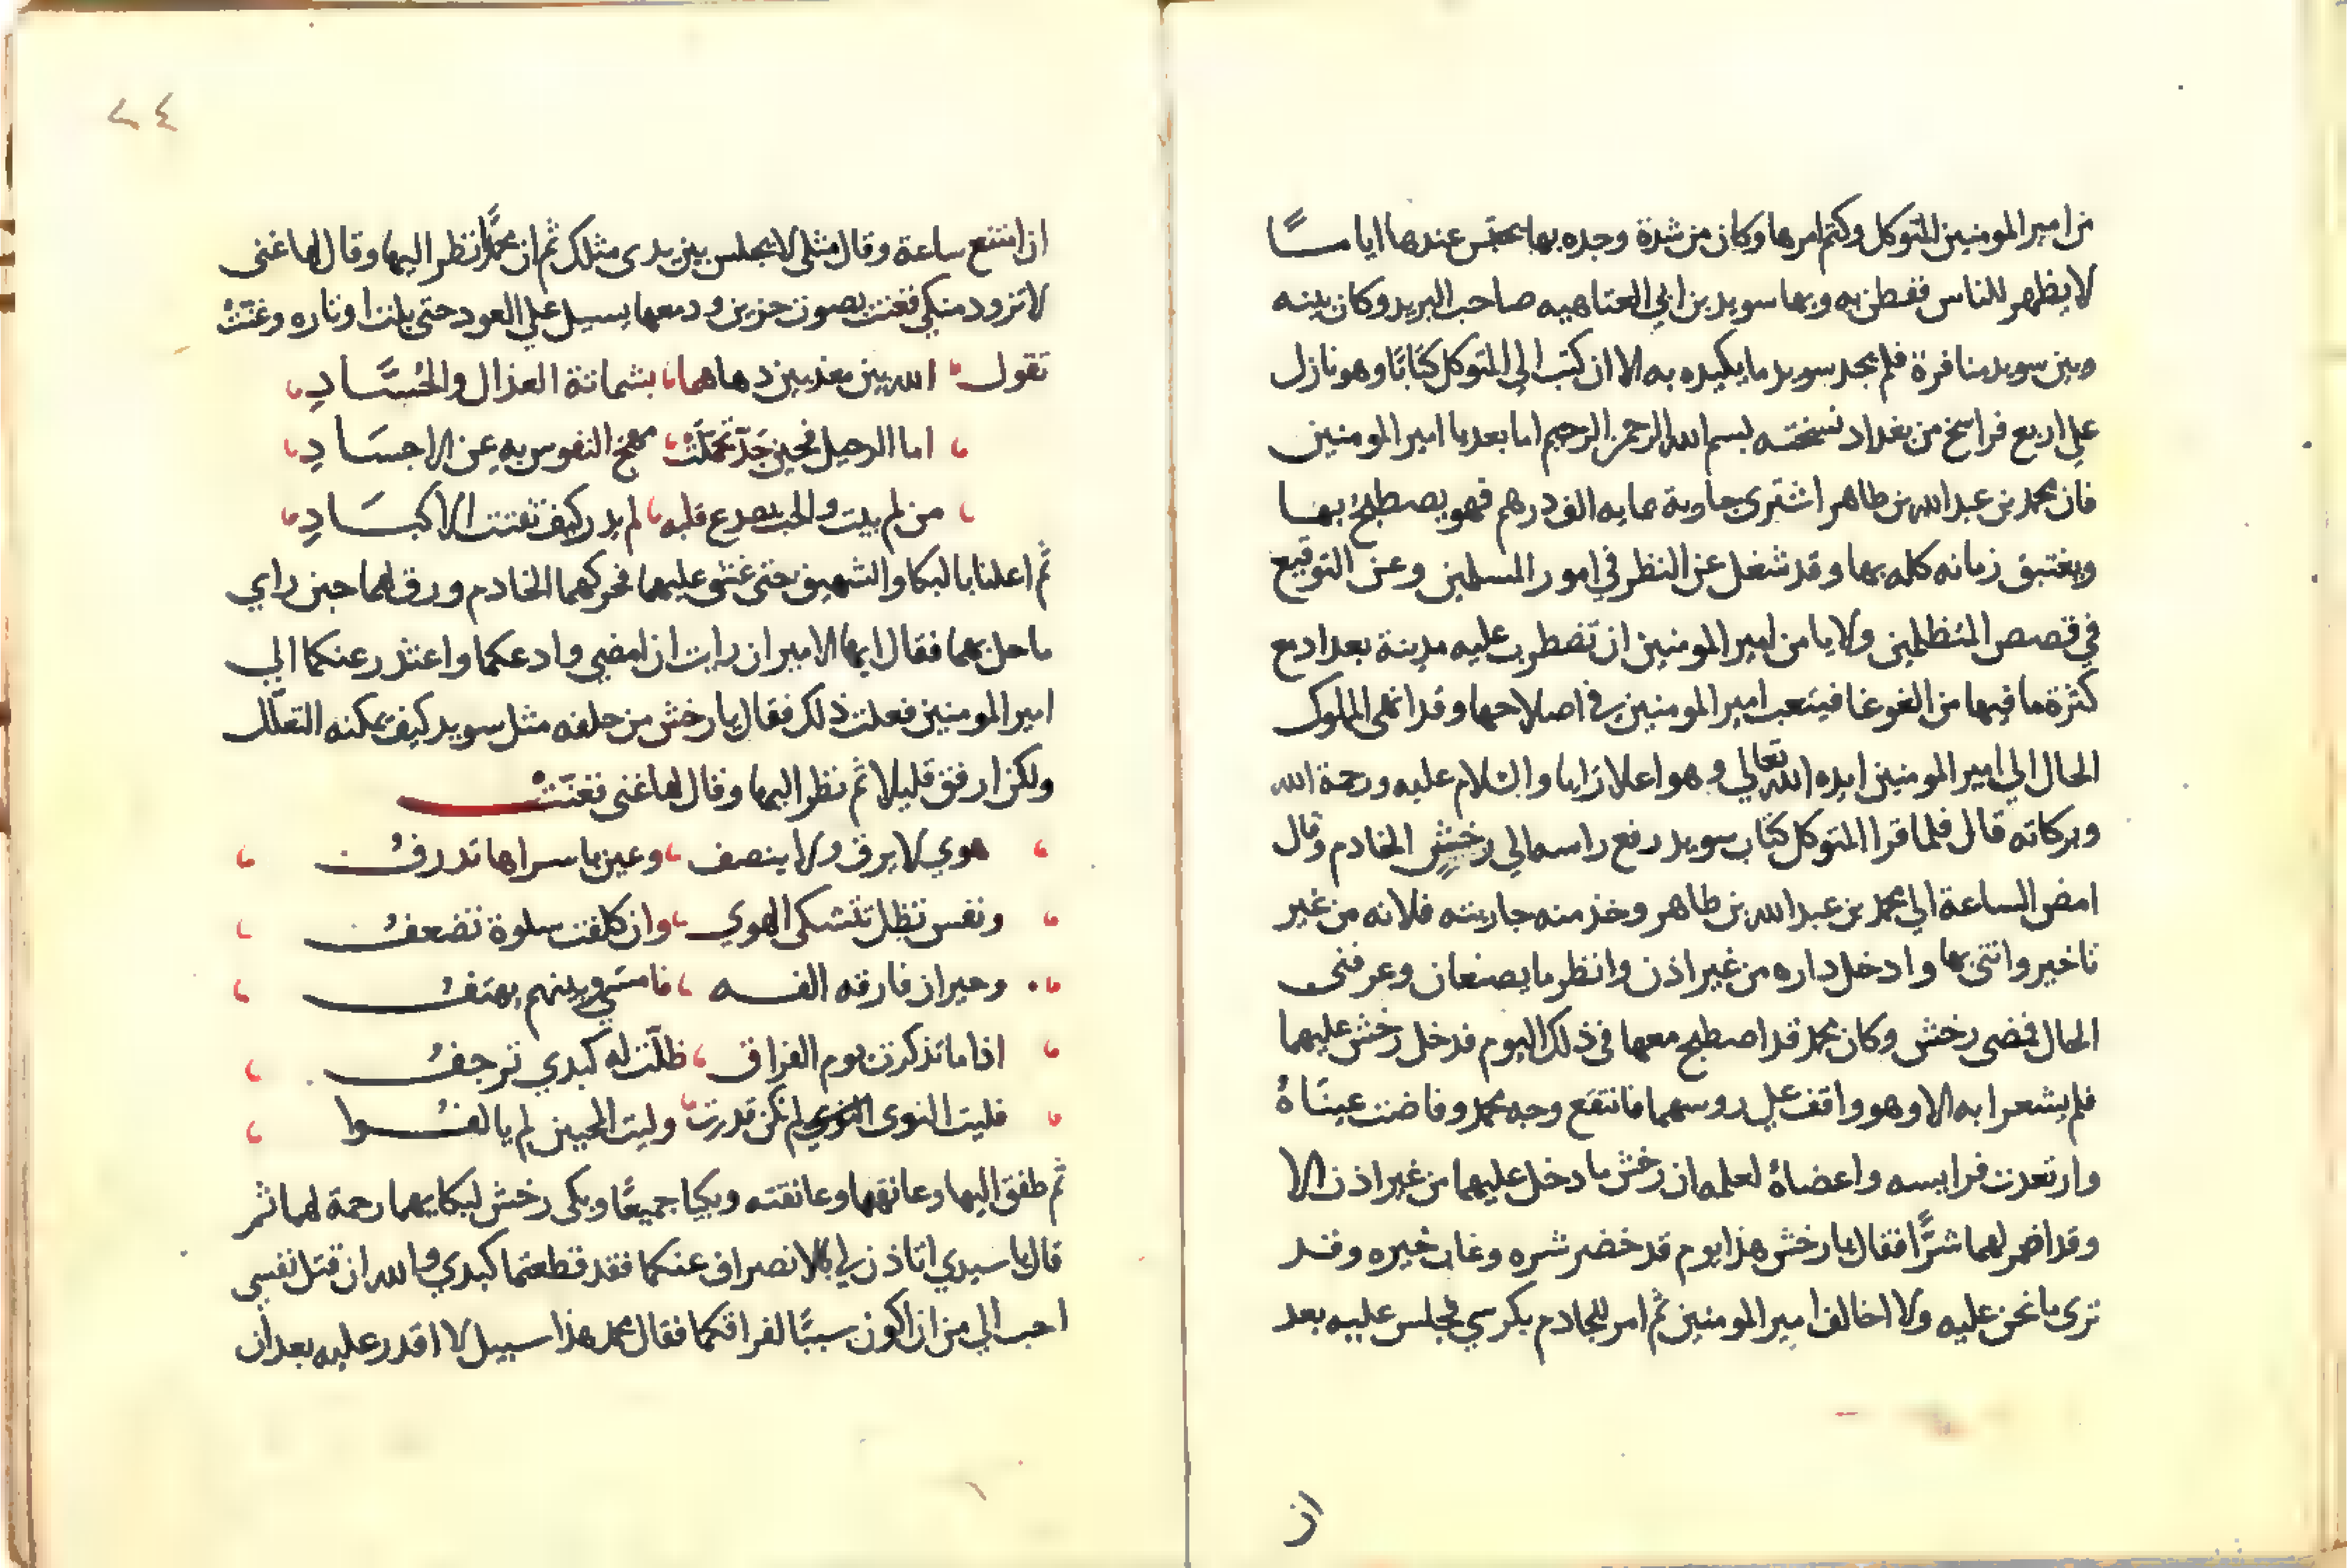 من امير المومنين المتوكل وكتم امرها وكان من شدة وجده بها يحتبس عندها اياما
لا يظهر للناس ففطن به وبها سويد بن ابي العتاهيه صاحب البريد وكان بينه
وبين سويد منافرة فلم يجد سويد ما يكيده به الا ان كتب الى المتوكل كتابًا وهو نازل
علي اربع فراسخ من بغداد نسخته بسم الله الرحمن الرحيم اما بعد يا امير المومنين
فان محمد بن عبد الله بن طاهر اشترى جارية بمايه الف درهم فهو يصطبحُ بها
ويغتبق زمانه كله بها وقد شغل عن النظر في امور المسلمين وعن التوقيع
في قصص المتظلمين ولا يامن امير المومنين ان تضطرب عليه مدينة بغداد مع
كثرة ما فيها من الغوغا فيتعب امير المومنين في اصلاحها وقد انهى المملوك
الحال الي امير المومنين ايده الله تعالي وهو اعلا رايا والسلام عليه ورحمة الله
وبركاته قال فلما قرا المتوكل كتاب سويد رفع راسه الي رخشٍ الخادم وقال
امض الساعة الي محمد بن عبد الله بن طاهر وخذ منه جاريته فلانه من غير
تاخير وائتني بها وادخل داره من غير اذن وانظر ما يصنعان وعرفني
الحال فمضى رخش وكان محمد قد اصطبح معها في ذلك اليوم فدخل رخش عليهما
فلم يشعرا به الا وهو واقف علي روسهما فانتقع وجه محمد وفاضت عيناهُ
وارتعدت فرايسه واعضاهُ لعلمه ان رخش ما دخل عليهما من غير اذن الا
وقد اضمر لهما شرًّا فقال يا رخش هذا يوم قد حضر شره وغاب خيره وقد
ترى ما نحن عليه ولا اخالف امير المومنين ثم امر للخادم بكرسي فجلس عليه بعد
ان
٢٤
ان امتنع ساعة وقال مثلي لا يجلس بين يدى مثلك ثم ان محمدًا نظر اليها وقال لها غنى
لاتزود منكي فغنت بصوت حزين ودمعها يسيل علي العود حتى بلت اوتاره وغنّتْ
تقول الله بين معذبين دهاهما بشماتة العذال والحُسَّادِ
اما الرحيل فحين جَدَّ تَرَحَّلَتْ مهج النفوس به عن الاجسَادِ
من لم يبت والحب يصدع قلبه لم يدر كيف تفتت الاكبَادِ
ثم اعلنا بالبكا والشهيق حتى غشى عليهما فحركهما الخادم ورق لهما حين راي
ما حل بهما فقال ايها الامير ان رايت ان امضي وادعكما واعتذر عنكما الي
امير المومنين فعلت ذلك فقال يا رخش من خلفه مثل سويد كيف يمكنه التعلّل
ولكن ارفق قليلا ثم نظر اليها وقال لها غنى فغنّتْ
هوي لا يرق ولا ينصف وعين باسرارها تدرفُ
ونفس تظل تتشكى الهوي وان كلفت سلوة تضعفُ
وحيران فارقه الفه فامسي وبينهم يهتفُ
اذا ما تذكرت يوم الفراق ظلّت له كبدي ترجفُ
فليت النوى لم تكن قدرت وليت المحبين لم يالفُوا
ثم طفق اليها وعانقها وعانقته وبكيا جميعًا وبكى رخش لبكايهما رحمة لهما ثم
قال يا سيدي اتاذن لي بالانصراف عنكما فقد قطعتما كبدي والله ان قتل نفسي
احب الي من ان اكون سببًا لفراقكما فقال محمد هذا سبيل لا اقدر عليه بعد ان